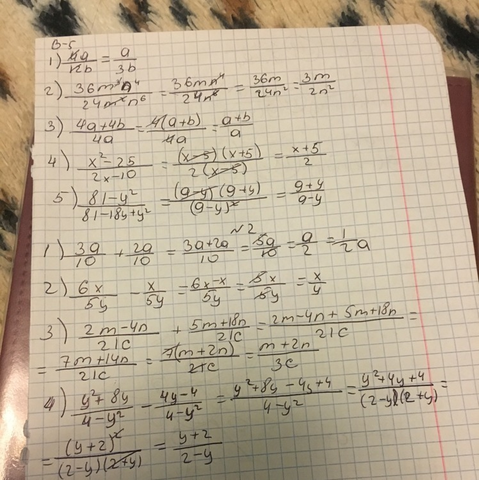 В-5
1) 4a/12b = a/3b
2) 36m³n⁴/24m²n⁶ = 36mn⁴/24n⁶ = 36m/24n² = 3m/2n²
3) 4a+4b/4a = 4(a+b)/4a = a+b/a
4) x²-25/2x-10 = (x-5)(x+5)/2(x-5) = x+5/2
5) 81-y²/81-18y+y² = (9-y)(9+y)/(9-y)² = 9+y/9-y
№2
1) 3a/10 + 2a/10 = 3a+2a/10 = 5a/10 = a/2 = 1/2 a
2) 6x/5y - x/5y = 6x-x/5y = 5x/5y = x/y
3) 2m-4n/21c + 5m+18n/21c = 2m-4n+5m+18n/21c =
= 7m+14n/21c = 7(m+2n)/21c = m+2n/3c
4) y²+8y/4-y² - 4y-4/4-y² = y²+8y-4y+4/4-y² = y²+4y+4/(2-y)(2+y) =
= (y+2)²/(2-y)(2+y) = y+2/2-y